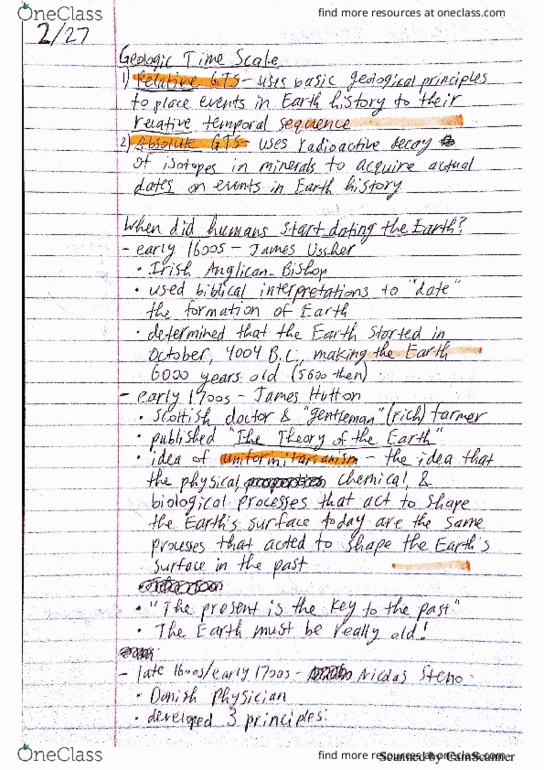 OneClass
find more resources at oneclass.com
2/27
Geologic Time Scale
1) Relative GTS - uses basic geological principles
to place events in Earth history to their
relative temporal sequence
2) Absolute GTS - uses radioactive decay
of isotopes in minerals to acquire actual
dates on events in Earth history
When did humans start dating the Earth?
- early 1600s - James Ussher
• Irish Anglican Bishop
• used biblical interpretations to "date"
the formation of Earth
• determined that the Earth started in
October, 4004 B.C, making the Earth
6000 years old (5600 then)
- early 1700s - James Hutton
• Scottish doctor & "gentleman" (rich) farmer
• published "The Theory of the Earth"
• idea of uniformitarianism - the idea that
the physical chemical, &
biological processes that act to shape
the Earth's surface today are the same
processes that acted to shape the Earth's
surface in the past
• "The present is the key to the past"
• The Earth must be really old!
- late 1600s/early 1700s - Nicolas Steno
• Danish Physician
• developed 3 principles:
OneClass
find more resources at oneclass.com
Scanned by CamScanner